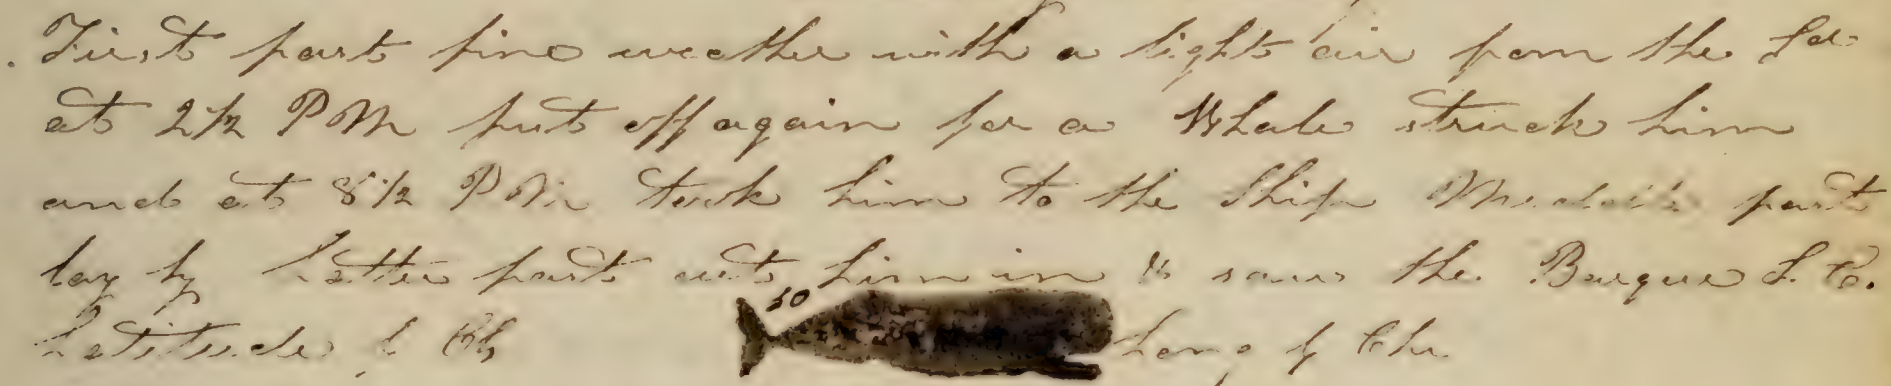 First part fine weather with a light air from the Sd
at 2 1/2 PM put off again for a Whale struck him
and at 8 1/2 PM took him to the Ship Middle part
lay by Latter part cut him in & saw the Barque L. C.
50
Latitude by Ch Long by Chr